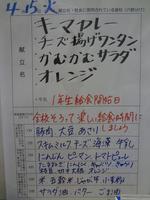 4.15.火
献立名
キーマカレー
チーズ揚げワンタン
かむかむサラダ
オレンジ
1年生給食開始日
全校そろって楽しい給食時間に
しましょう
豚肉 大豆 あさり
スキムミルク チーズ 海藻 牛乳
にんじん ピーマン トマトピューレ
たまねぎ にんにく
切干大根 オレンジ
米 石穀米 じゃが芋 小麦粉
サラダ油 バター ごま油